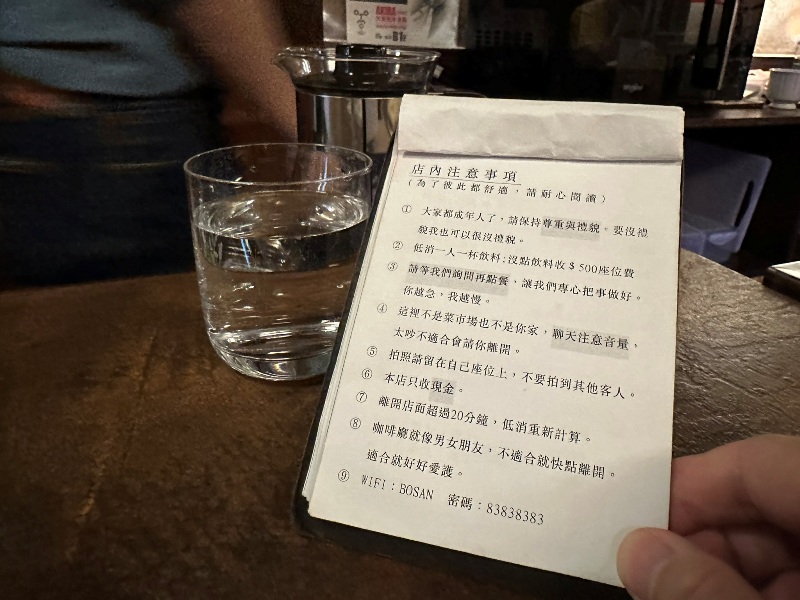 店內注意事項
(為了彼此都舒適,請耐心閱讀)
① 大家都成年人了,請保持尊重與禮貌。要沒禮
貌我也可以很沒禮貌。
② 低消一人一杯飲料;沒點飲料收$500座位費
③ 請等我們詢問再點餐,讓我們專心把事做好。
你越急,我越慢。
④ 這裡不是菜市場也不是你家,聊天注意音量,
太吵不適合會請你離開。
⑤ 拍照請留在自己座位上,不要拍到其他客人。
⑥ 本店只收現金。
⑦ 離開店面超過20分鐘,低消重新計算。
⑧ 咖啡廳就像男女朋友,不適合就快點離開。
適合就好好愛護。
⑨ WIFI:BOSAN 密碼:83838383